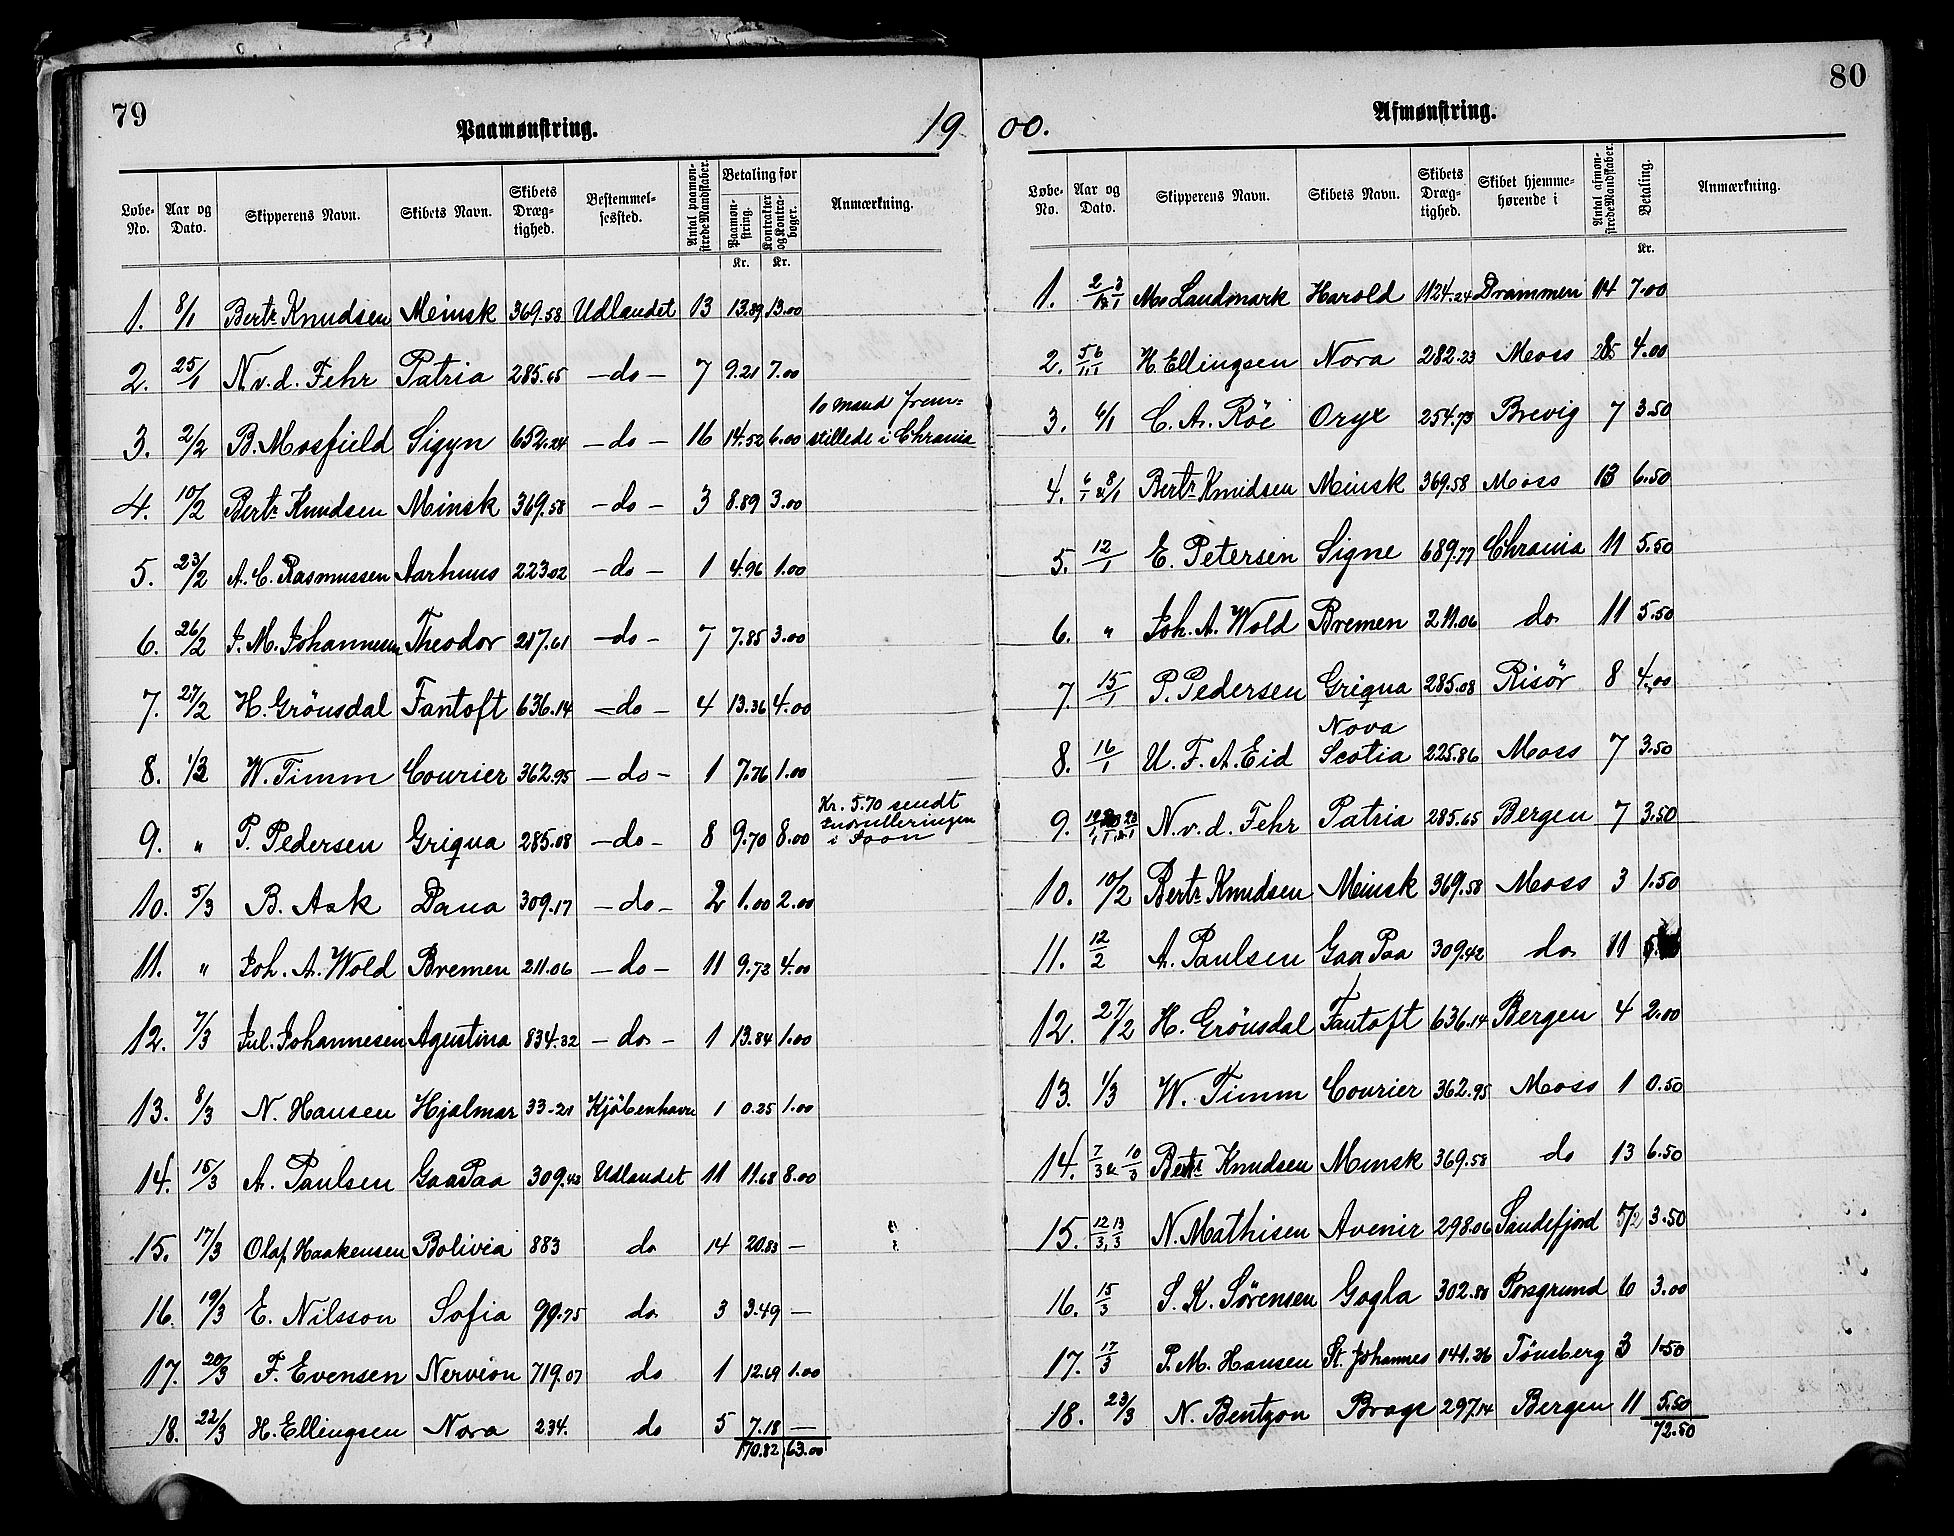 79
Paamønstring.
19
Løbe-No. Aar og Dato. Skipperens Navn. Skibets Navn. Skibets Dræg-tighed. Bestemmel-sessted. Antal paamøn-strede Mandskaber. Betaling for Paamøn-string. Kontrakter og Kontra-bøger. Anmærkning.
Kr. Kr.
1. 8/1 Bertr Knudsen Meinsk 369.58 Udlandet 13 13.89 13.00
2. 25/1 N. v. d. Fehr Patria 285.65 - do - 7 9.21 7.00
10 mand frem=
3. 2/2 B. Mosfield Sigyn 652.24 - do - 16 14.52 6.00 stillede i Chrania
4. 10/2 Bertr Knudsen Meinsk 369.58 - do - 3 8.89 3.00
5. 23/2 A. C. Rasmussen Aarhuus 223.02 - do - 1 4.96 1.00
6. 26/2 J. M. Johannesen Theodor 217.61 - do - 7 7.85 3.00
7. 27/2 H. Grönsdal Fantoft 636.14 - do - 4 13.36 4.00
8. 1/3 W. Timm Courier 362.95 - do - 1 7.76 1.00
Kr. 5.70 sendt
Indrulleringen
9. " P. Pedersen Griqua 285.08 - do - 8 9.70 8.00 i Soon
10. 5/3 B. Ask Dana 309.17 - do - 2 1.00 2.00
11. " Joh. A. Wold Bremen 211.06 - do - 11 9.72 4.00
12. 7/3 Jul. Johannesen Agustina 834.32 - do - 1 13.84 1.00
13. 8/3 N. Hansen Hjalmar 33-21 Kjöbenhavn 1 0.25 1.00
14. 15/3 A. Paulsen GaaPaa 309.42 Udlandet 11 11.68 8.00
15. 17/3 Olaf Haakensen Bolivia 883 do 14 20.83 —
16. 19/3 E. Nilsson Sofia 99.75 do 3 3.49 —
17. 20/3 F. Evensen Nervion 719.07 do 1 12.69 1.00
18. 22/3 H. Ellingsen Nora 234. do 5 7.18 —
170.82 63.00
80
Afmønstring.
00.
Løbe-No. Aar og Dato. Skipperens Navn. Skibets Navn. Skibets Dræg-tighed. Skibet hjemme-hørende i Antal afmøn-strede Mandskaber. Betaling. Anmærkning.
Kr.
1. Landmark Harold 1124.24 Drammen 14 7.00
2. 5/1, 6/1 H. Ellingsen Nora 282.23 Moss 4.00
3. 6/1 C. A. Röe Oryx 254.73 Brevig 7 3.50
4. 6/1 & 8/1 Bertr Knudsen Meinsk 369.58 Moss 13 6.50
5. 12/1 E. Petersen Signe 689.77 Chrania 11 5.50
6. " Joh. A. Wold Bremen 211.06 do 11 5.50
7. 15/1 P. Pedersen Griqua 285.08 Risör 8 4.00
Nova
8. 16/1 U. F. A. Eid Scotia 225.86 Moss 7 3.50
9. N. v. d. Fehr Patria 285.65 Bergen 7 3.50
10. 10/2 Bertr Knudsen Meinsk 369.58 Moss 3 1.50
11. 12/2 A. Paulsen Gaa Paa 309.42 do 11
12. 27/2 H. Grönsdal Fantoft 636.14 Bergen 4 2.00
13. 1/3 W. Timm Courier 362.95 Moss 1 0.50
14. 7/3 & 10/3 Bertr Knudsen Mensk 369.58 do 13 6.50
15. 12/3, 13/3 N. Mathisen Avenir 298.06 Sandefjord 5/2 3.50
16. 15/3 S. K. Sörensen Gogla 302.80 Porsgrund 6 3.00
17. 17/3 P. M. Hansen St. Johannes 141.26 Tönsberg 3 1.50
18. 23/3 N. Bentzon Brage 297.14 Bergen 11 5.50
72.50